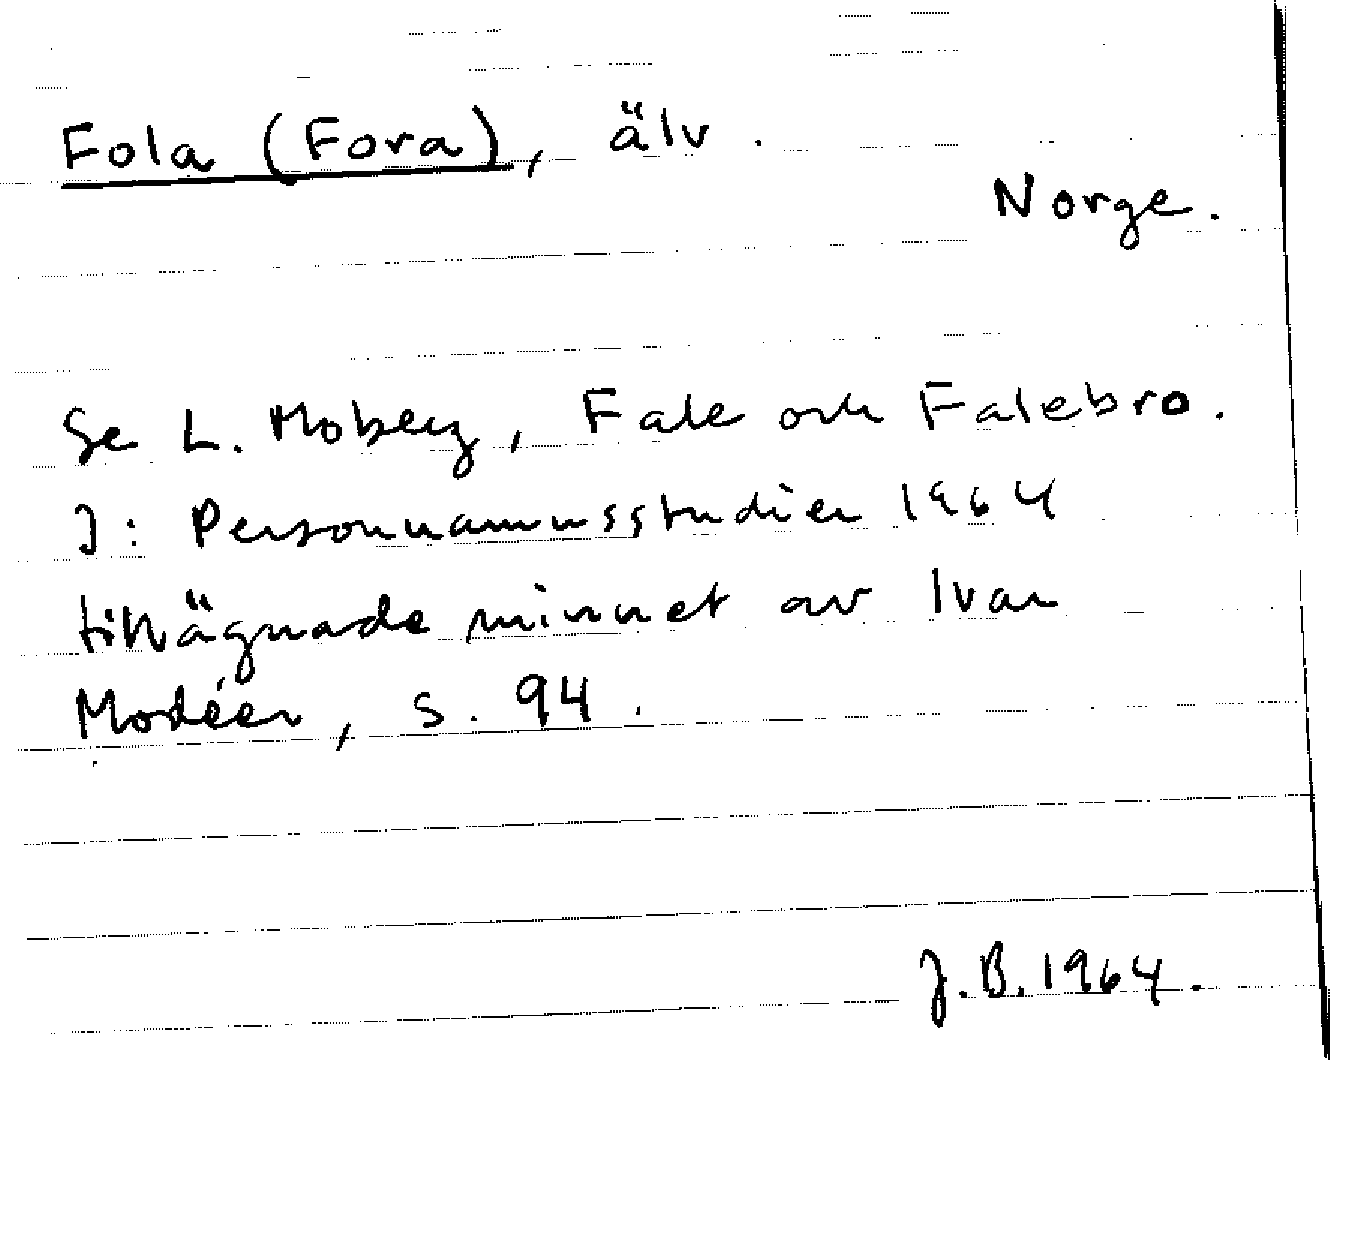 Fola (Fora), älv.
Norge.
Se L. Moberg, Fale och Falebro.
I: Personnamnsstudier 1964
tillägnade minnet av Ivar
Modéer, s. 94.
J.B. 1964.